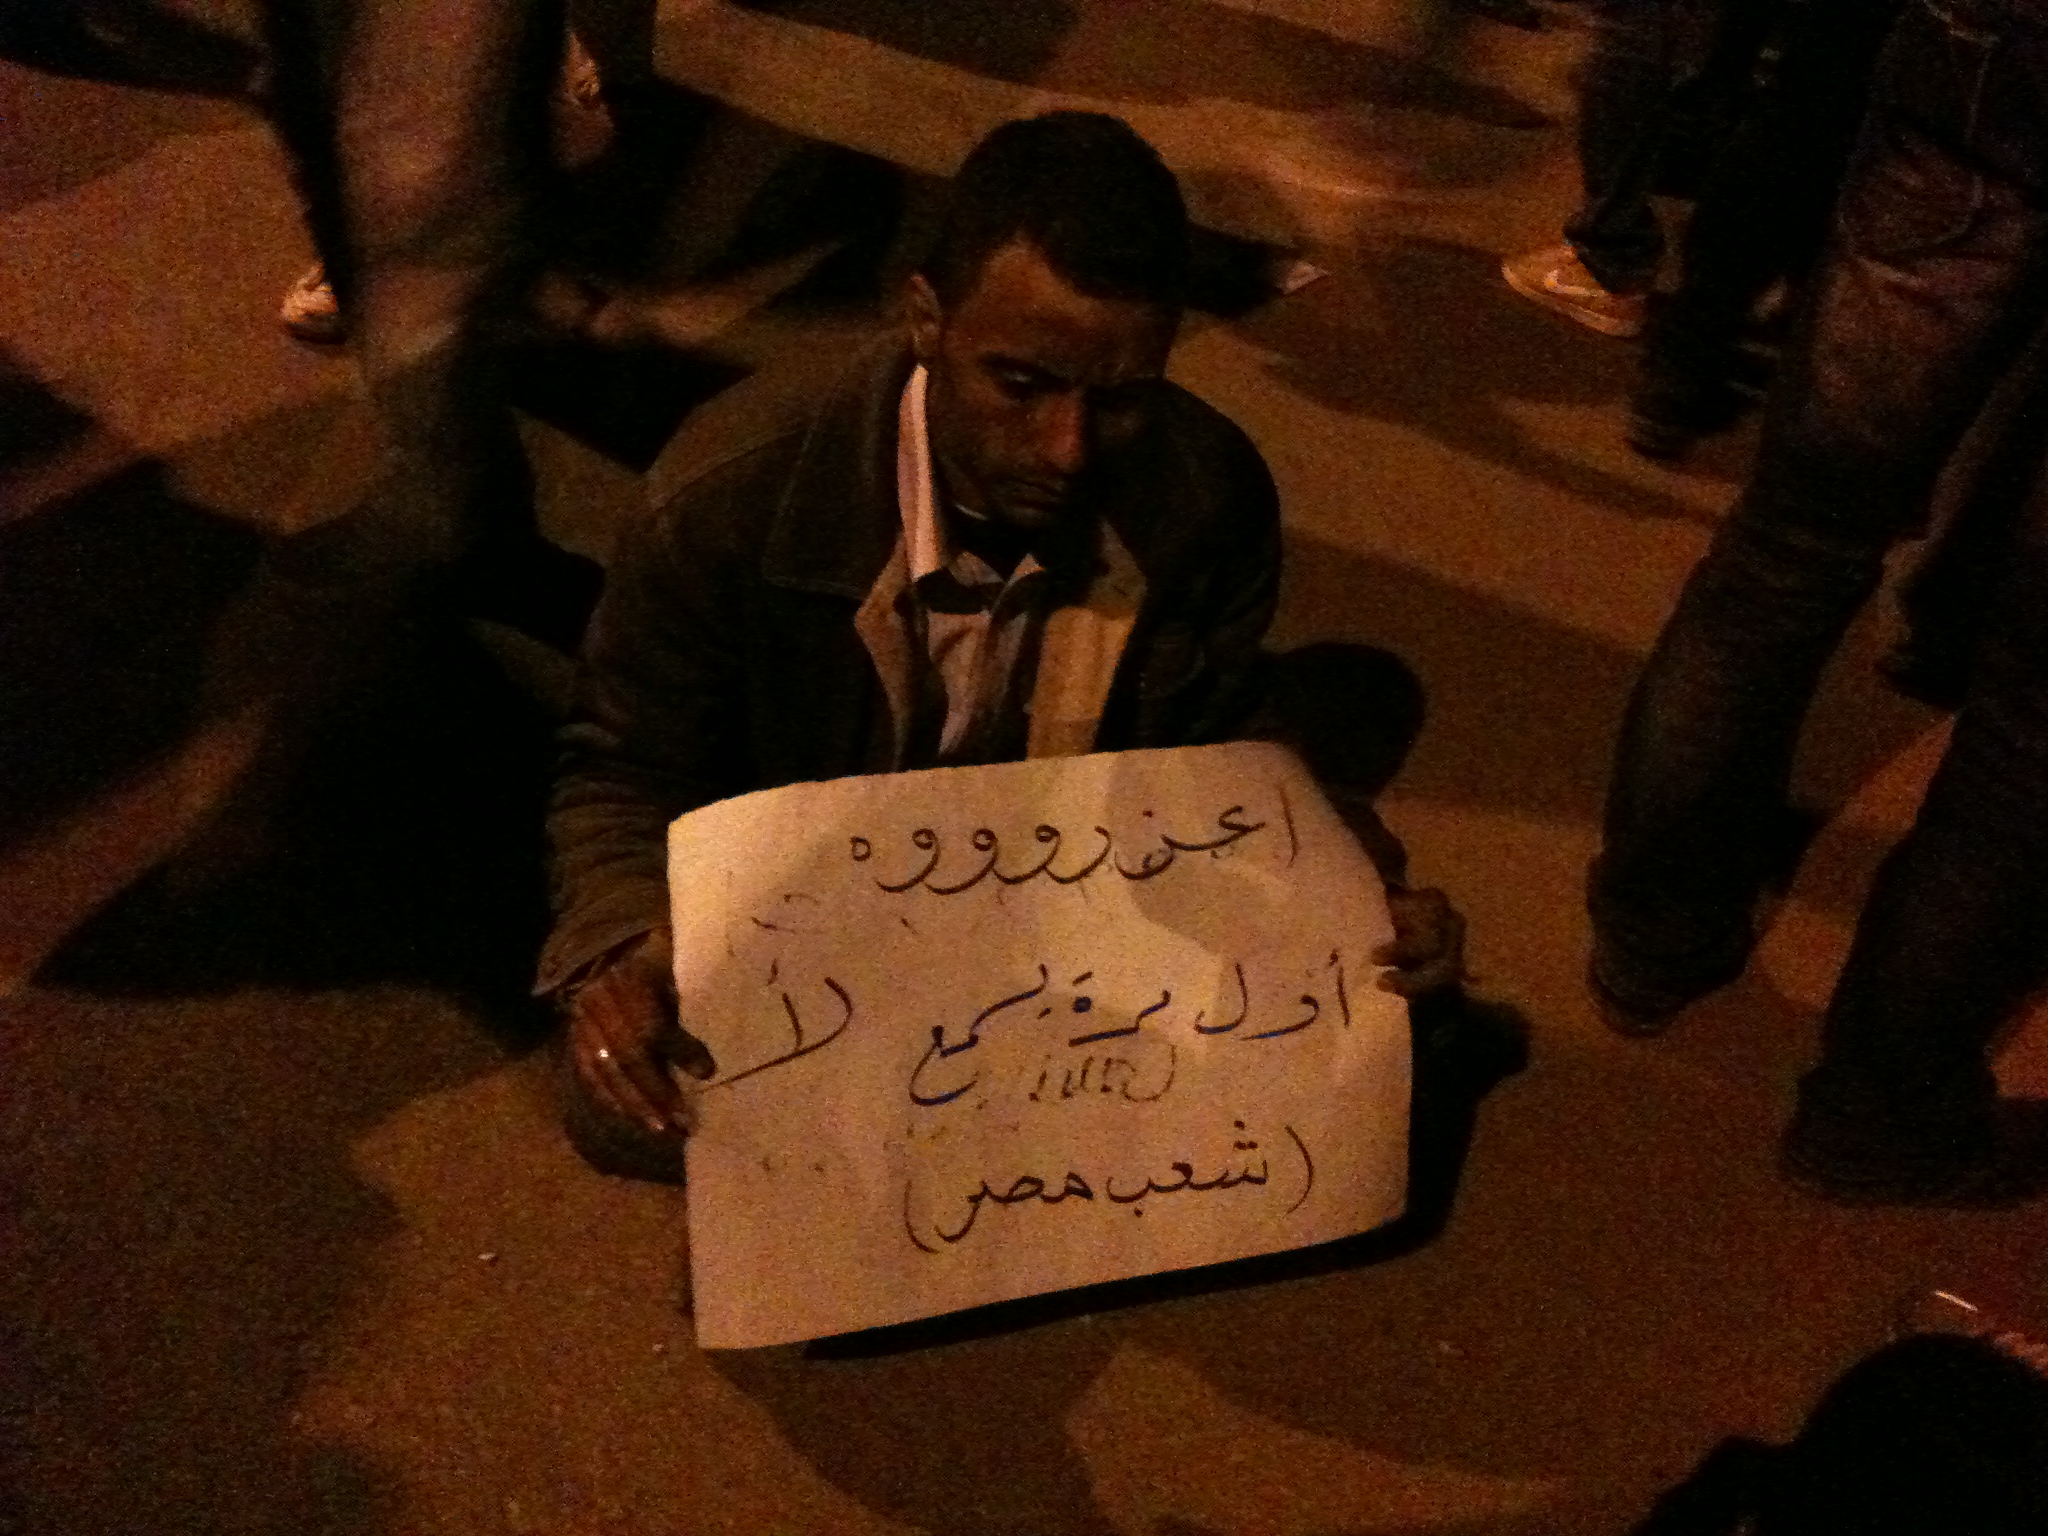 اعذرووووه
أول مرة يسمع لأ
(شعب مصر)